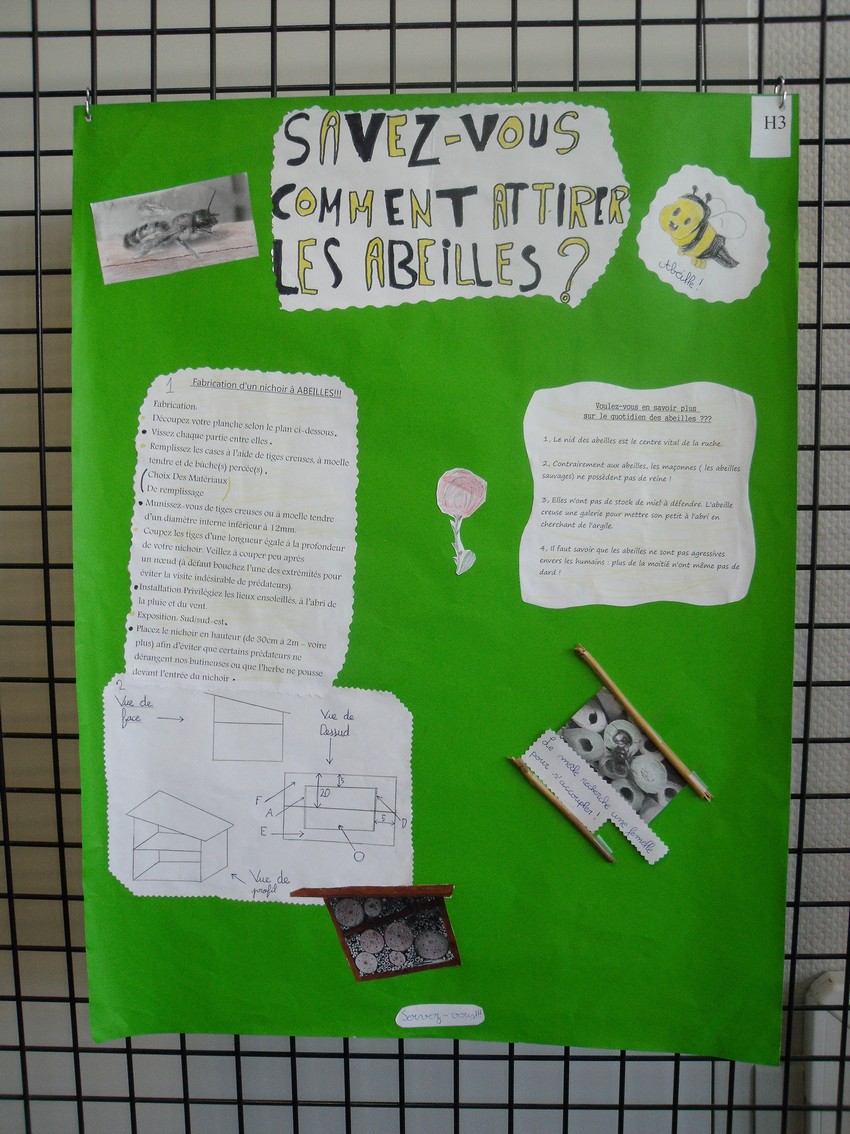 H3
SAVEZ-VOUS
COMMENT ATTIRER
LES ABEILLES ?
Abeille !
1 Fabrication d'un nichoir à ABEILLES!!!
Fabrication:
Découpez votre planche selon le plan ci-dessous.
Vissez chaque partie entre elles.
Remplissez les cases à l'aide de tiges creuses, à moelle
tendre et de bûche(s) percée(s).
(Choix Des Matériaux
De remplissage )
Munissez-vous de tiges creuses ou à moelle tendre
d'un diamètre interne inférieur à 12mm.
Coupez les tiges d'une longueur égale à la profondeur
de votre nichoir. Veillez à couper peu après
un nœud (à défaut bouchez l'une des extrémités pour
éviter la visite indésirable de prédateurs)
Installation Privilégiez les lieux ensoleillés, à l'abri de
la pluie et du vent.
Exposition: Sud/sud-est.
Placez le nichoir en hauteur (de 30cm à 2m – voire
plus) afin d'éviter que certains prédateurs ne
dérangent nos butineuses ou que l'herbe ne pousse
devant l'entrée du nichoir.
Voulez-vous en savoir plus
sur le quotidien des abeilles ???
1, Le nid des abeilles est le centre vital de la ruche.
2, Contrairement aux abeilles, les maçonnes ( les abeilles
sauvages) ne possèdent pas de reine !
3, Elles n'ont pas de stock de miel à défendre. L'abeille
creuse une galerie pour mettre son petit à l'abri en
cherchant de l'argile.
4, Il faut savoir que les abeilles ne sont pas agressives
envers les humains : plus de la moitié n'ont même pas de
dard !
2
Vue de
face
Vue de
Dessud
5
20
F
A
E
5
D
Vue de
profil
Le male recherche une femelle
pour s'accoupler !
Servez-vous!!!